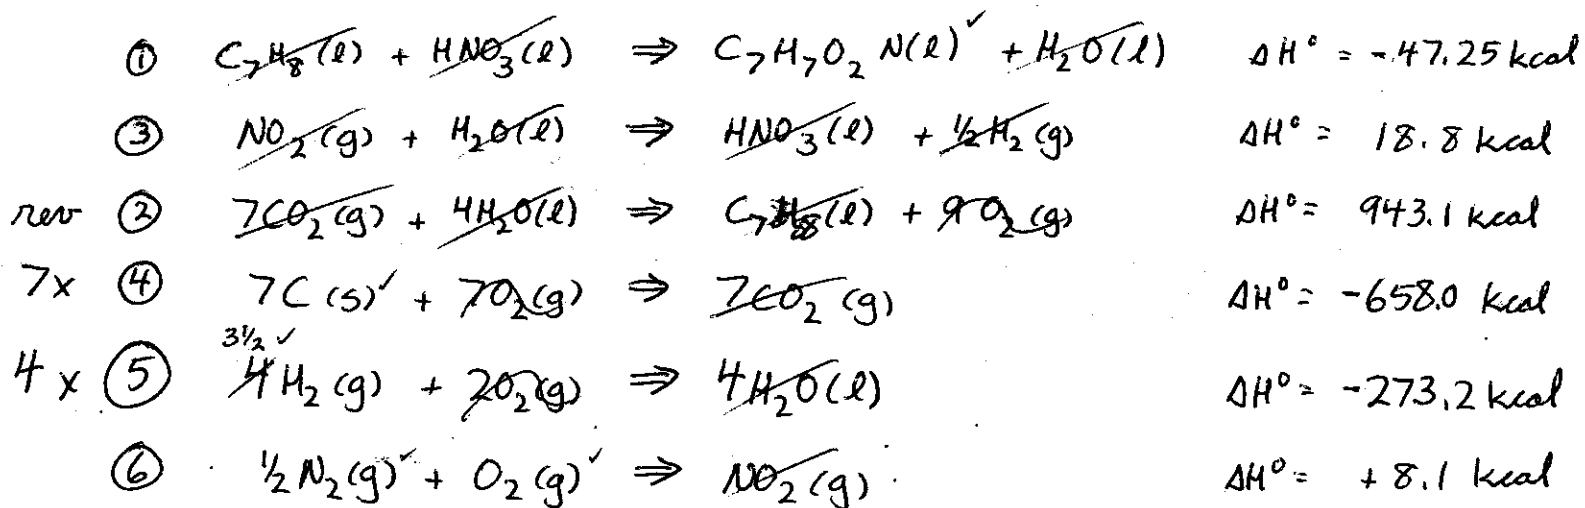 ① C₇H₈(l) + HNO₃(l) ⇒ C₇H₇O₂N(l) ✓ + H₂O(l) ΔH° = -47.25 kcal
③ NO₂(g) + H₂O(l) ⇒ HNO₃(l) + ½H₂(g) ΔH° = 18.8 kcal
rev ② 7CO₂(g) + 4H₂O(l) ⇒ C₇H₈(l) + 9O₂(g) ΔH° = 943.1 kcal
7x ④ 7C(s) ✓ + 7O₂(g) ⇒ 7CO₂(g) ΔH° = -658.0 kcal
3½ ✓
4x ⑤ 4H₂(g) + 2O₂(g) ⇒ 4H₂O(l) ΔH° = -273.2 kcal
⑥ ½N₂(g) ✓ + O₂(g) ✓ ⇒ NO₂(g) ΔH° = +8.1 kcal